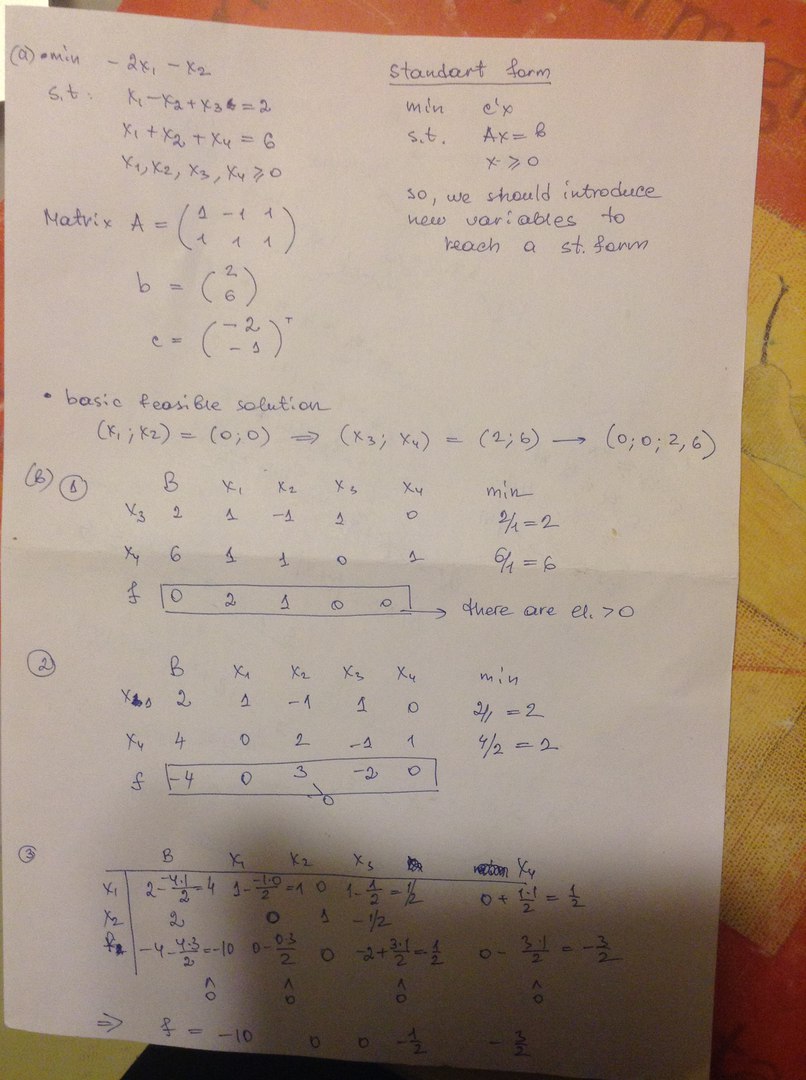 (a) • min - 2x₁ - x₂
s.t: x₁ - x₂ + x₃ = 2
x₁ + x₂ + x₄ = 6
x₁, x₂, x₃, x₄ ⩾ 0
Matrix A = ( 1 -1 1
1 1 1 )
b = ( 2
6 )
c = ( -2
-1 )ᵀ
Standart form
min c'x
s.t. Ax = b
x ⩾ 0
so, we should introduce
new variables to
reach a st. form
• basic feasible solution
(x₁; x₂) = (0; 0) ⟹ (x₃; x₄) = (2; 6) ⟶ (0; 0; 2, 6)
(b) ① B x₁ x₂ x₃ x₄ min
x₃ 2 1 -1 1 0 2/1 = 2
x₄ 6 1 1 0 1 6/1 = 6
f 0 2 1 0 0 → there are el. > 0
② B x₁ x₂ x₃ x₄ min
x₁ 2 1 -1 1 0 2/1 = 2
x₄ 4 0 2 -1 1 4/2 = 2
f -4 0 3 -2 0
>0
③ B x₁ x₂ x₃ x₄
x₁ 2 - -4·1/2 = 4 1 - -1·0/2 = 1 0 1 - 1/2 = 1/2 0 + 1·1/2 = 1/2
x₂ 2 0 1 -1/2
f -4 - 4·3/2 = -10 0 - 0·3/2 0 -2 + 3·1/2 = 1/2 0 - 3·1/2 = -3/2
^ ^ ^ ^
0 0 0 0
⟹ f = -10 0 0 -1/2 -3/2